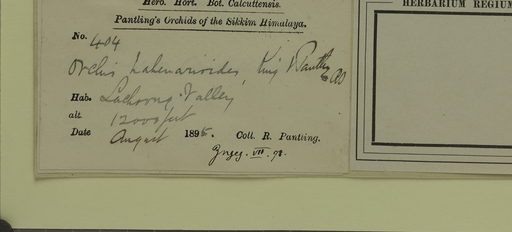 Herb. Hort. Bot. Calcuttensis.
HERBARIUM REGIUM
Pantling's Orchids of the Sikkim Himalaya.
No. 404
Orchis habenarioides, King & Pantling
Hab. Lachoong Valley
alt. 12000 feet
Date August 1895. Coll. R. Pantling.
VII